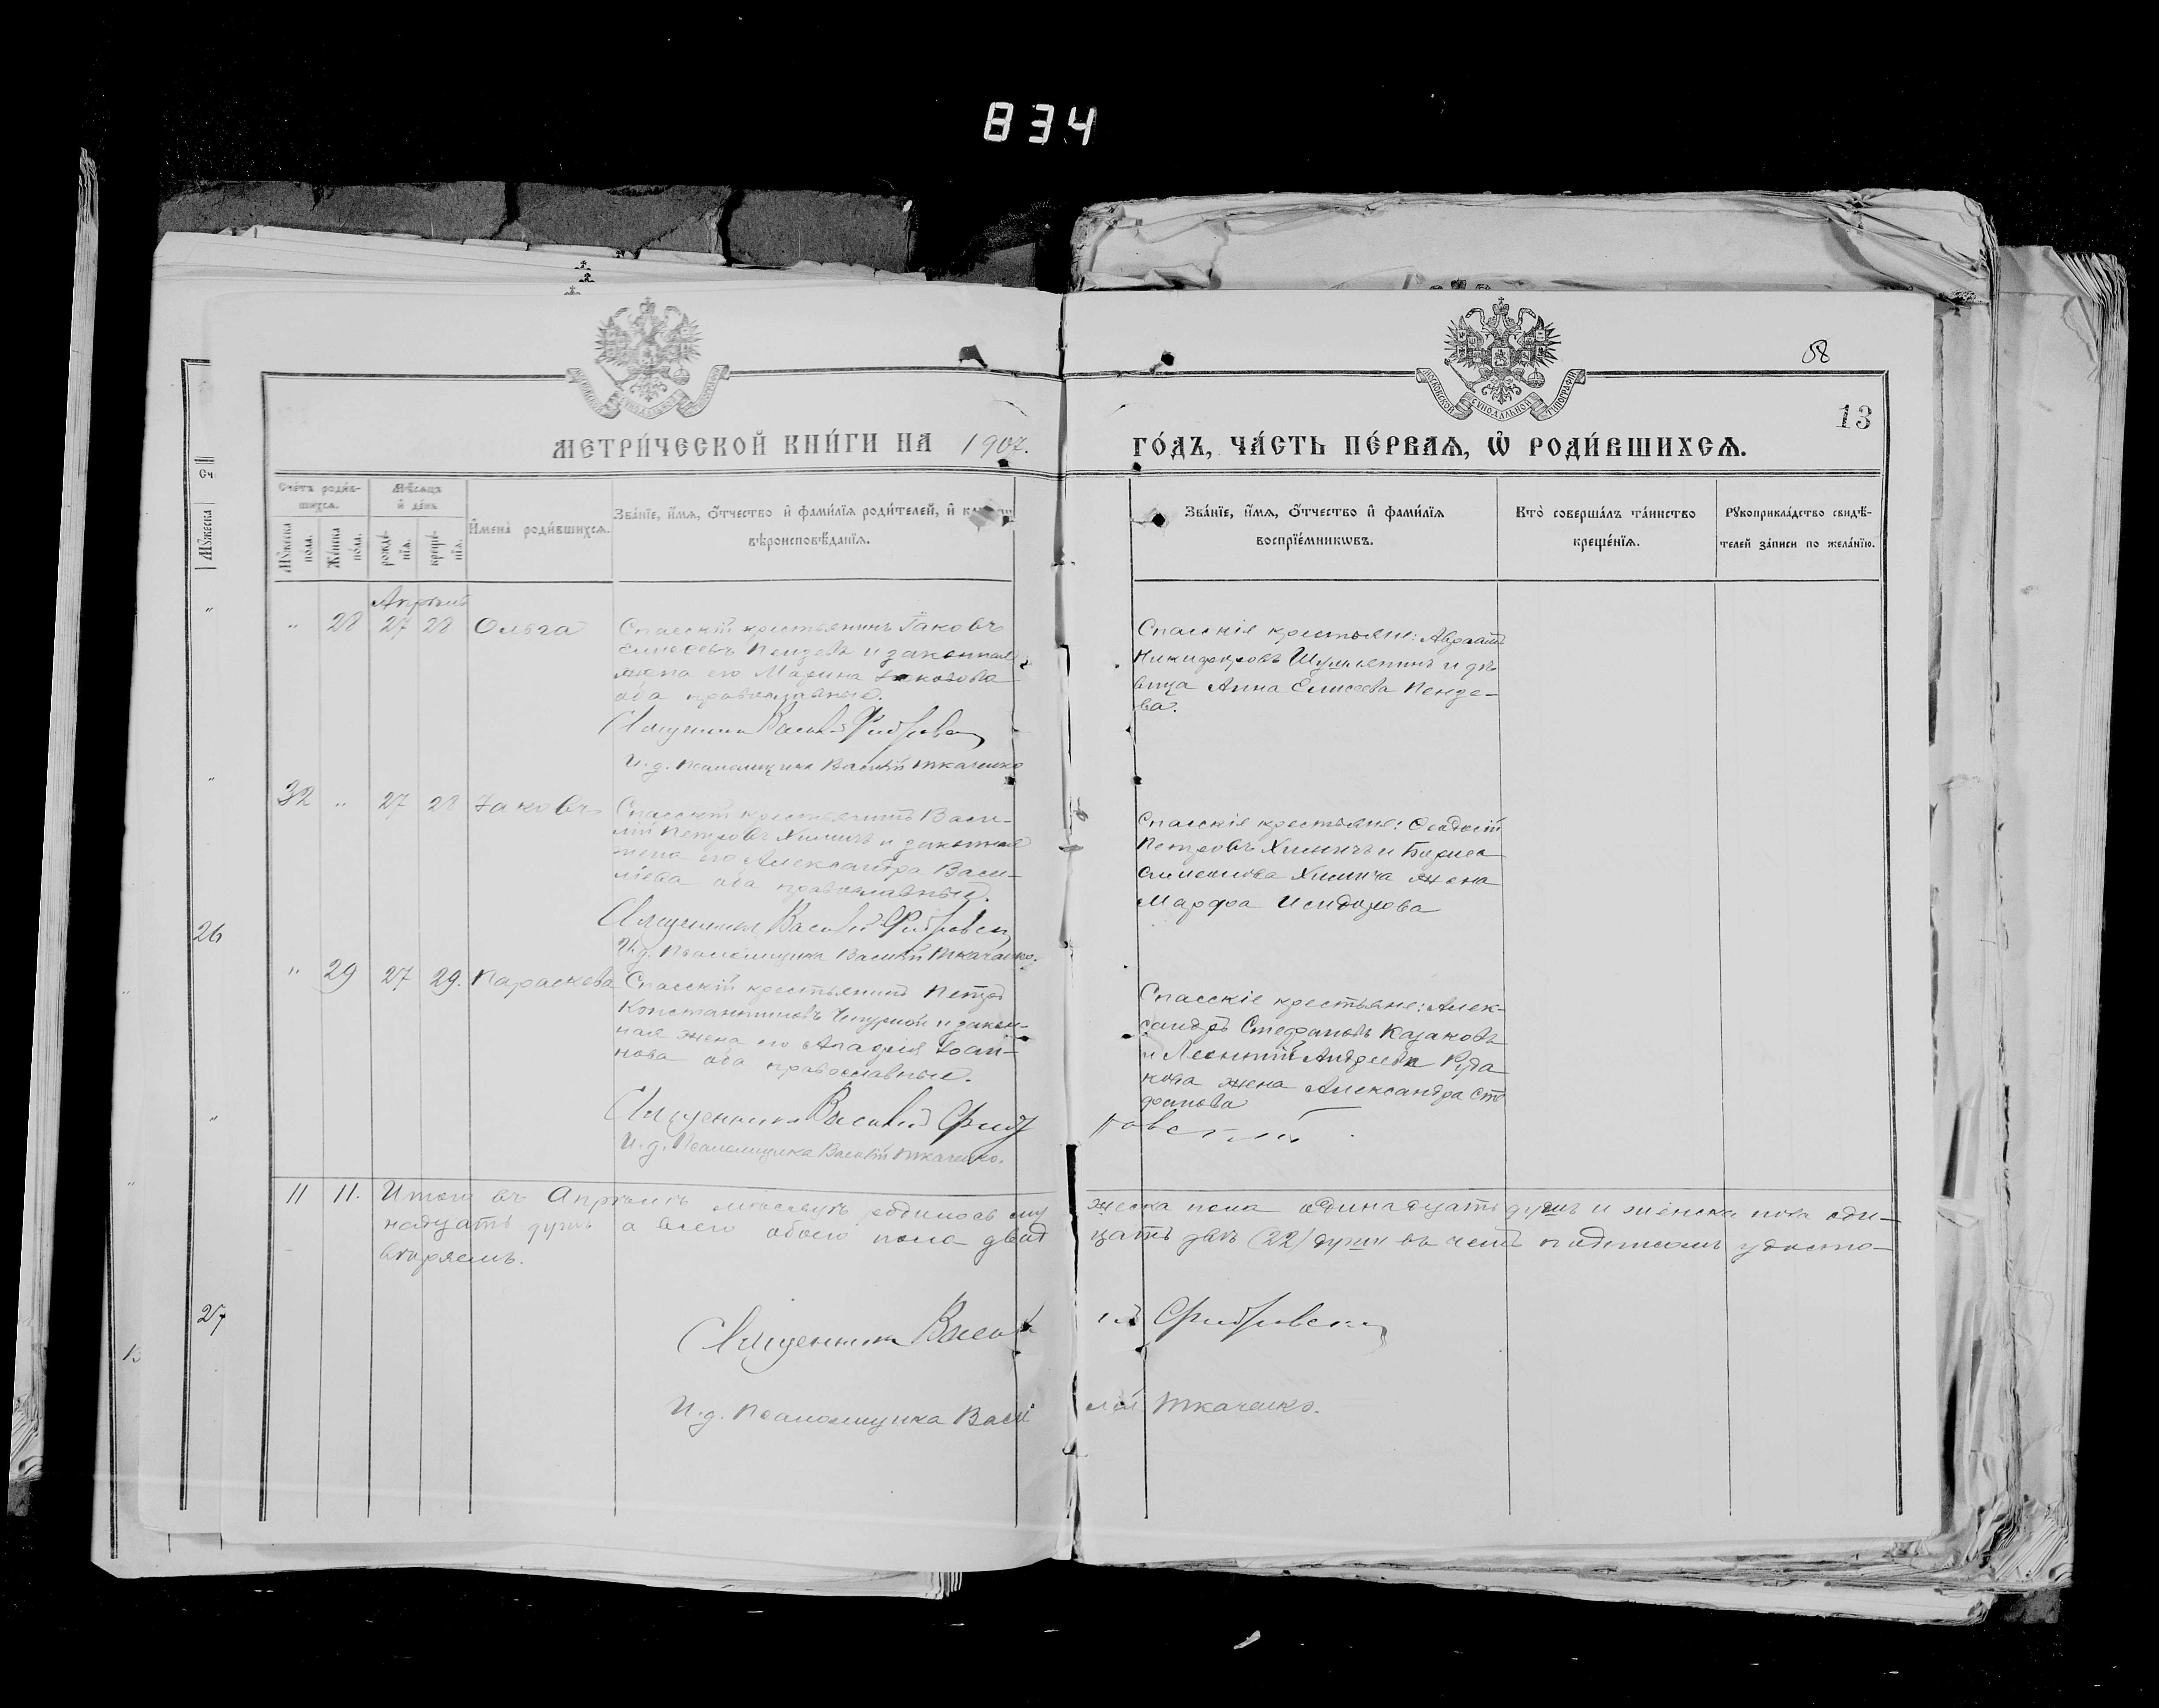 834
58
13
МОСКОВСКОЙ СѴНОДАЛЬНОЙ ТИПОГРАФІИ
МОСКОВСКОЙ СѴНОДАЛЬНОЙ ТИПОГРАФІИ
МЕТРИ́ЧЕСКОЙ КНИ́ГИ НА 1907. ГО́ДЪ, ЧА́СТЬ ПЕ́РВАѦ, Ѡ҆ РОДИ́ВШИХСѦ.
Сче́тъ роди́в-
шихсѧ.
Мѣ́сѧцъ
и҆ де́нь
Мꙋ́жеска
по́ла.
Же́нска
по́ла.
рожде́-
нїѧ.
креще́-
нїѧ.
И҆мена̀ роди́вшихсѧ.
Зва́нїе, и҆́мѧ, ѻ҆́тчество и҆ фами́лїѧ роди́телей, и҆
вѣроисповѣ́данїѧ.
Зва́нїе, и҆́мѧ, ѻ҆́тчество и҆ фами́лїѧ
воспрїе́мникѡвъ.
Кто̀ соверша́лъ та́инство
креще́нїѧ.
Рꙋкоприкла́дство свидѣ́-
телей за́писи по жела́нїю.
Сч
Мꙋ́жеска
Апрѣль
" 28 27 28 Ольга
Спасскій крестьянинъ Іаковъ
Елисеевъ Пендевъ и законная
жена его Марина Іаковова
оба православные.
Священникъ Василій
И. д. Псаломщика Василій Ткаченко
Спасскіе крестьяне: Авраамъ
Никифоровъ и дѣ
вица Анна Елисеева Пенде-
ва.
32 " 27 28 Іаковъ
Спасскій крестьянинъ Васи-
лій Петровъ Химичъ и законная
жена его Александра Васи-
ліева оба православные.
Священникъ Василій
И. д. Псаломщика Василій Ткаченко.
Спасскіе крестьяне: Феодосій
Петровъ Химичъ и Бориса
Симеонова Химича жена
Марфа Исидорова
" 29 27 29. Параскева
Спасскій крестьянинъ Петръ
Константиновъ Чепурной и закон-
ная жена его Агафія Іоан-
нова оба православные.
Священникъ Василій
И. д. Псаломщика Василій Ткаченко.
Спасскіе крестьяне: Алек-
сандръ Стефановъ Казаковъ
и Леонтій Андреева Руда
кова жена Александра Сте
фанова
26
27
13
11 11. Итого въ Апрѣлѣ мѣсяцѣ родилось му жеска пола одинадцать душъ и женска пола оди-
надцать душъ а всего обоего пола двад цать двѣ (22) души въ чемъ подписомъ удосто-
вѣряемъ.
Священникъ Василій
И. д. Псаломщика Василій Ткаченко.